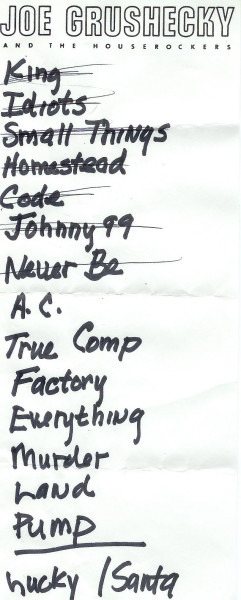 JOE GRUSHECKY
AND THE HOUSEROCKERS
King
Idiots
Small Things
Homestead
Code
Johnny 99
Never Be
A.C.
True Comp
Factory
Everything
Murder
Land
Pump
Lucky / Santa